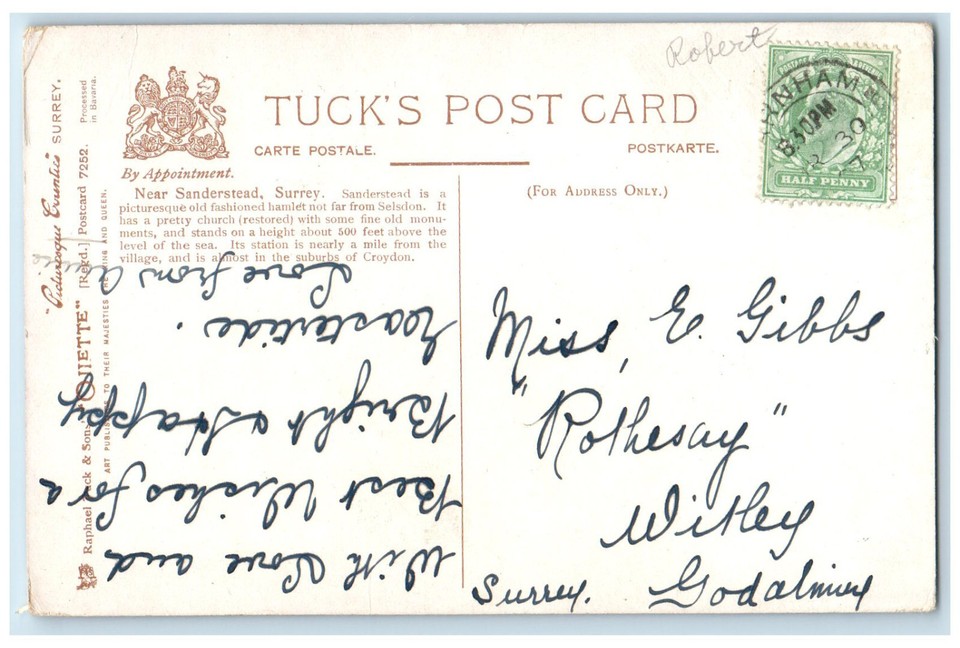 Robert
TUCK'S POST CARD
CARTE POSTALE.
POSTKARTE.
(FOR ADDRESS ONLY.)
By Appointment.
Near Sanderstead, Surrey. Sanderstead is a
picturesque old fashioned hamlet not far from Selsdon. It
has a pretty church (restored) with some fine old monu-
ments, and stands on a height about 500 feet above the
level of the sea. Its station is nearly a mile from the
village, and is almost in the suburbs of Croydon.
"Picturesque Counties" SURREY.
Raphael Tuck & Sons' "OILETTE" [Regd.] Postcard 7252. Processed
in Bavaria.
ART PUBLISHERS TO THEIR MAJESTIES THE KING AND QUEEN.
With Love and
Best Wishes for a
Bright & Happy
Eastertide.
Love from
Miss, E. Gibbs
"Rothesay"
Witley
Surrey. Godalming
POSTAGE
HALF PENNY
8.30PM
30
7